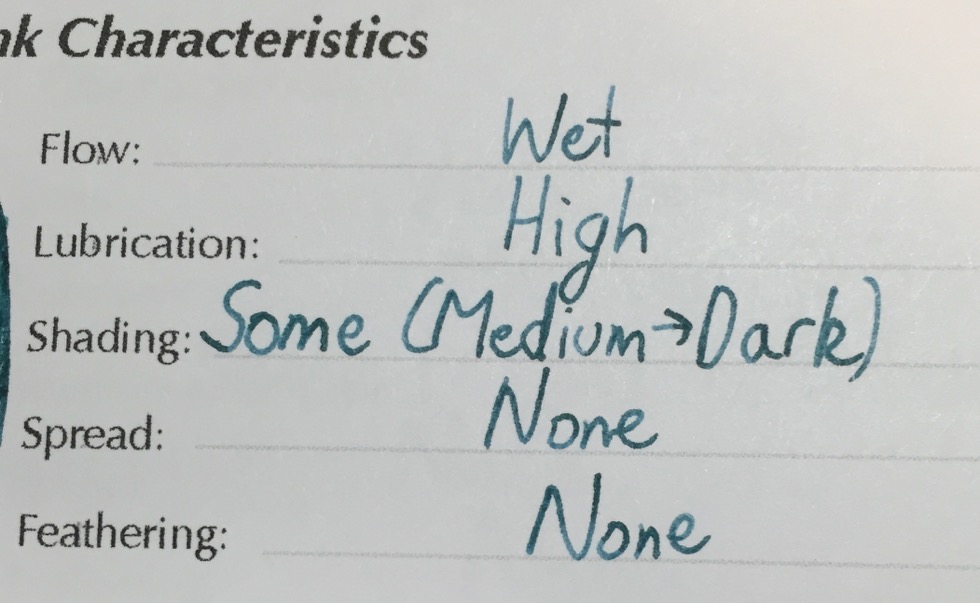 nk Characteristics
Flow: Wet
Lubrication: High
Shading: Some (Medium→Dark)
Spread: None
Feathering: None